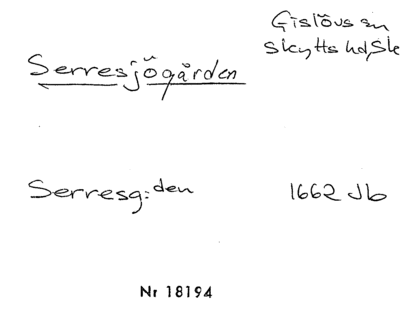 Gislövs sn
Skytts hd, Sk
Serresjögården
Serresg:den 1662 Jb
Nr 18194